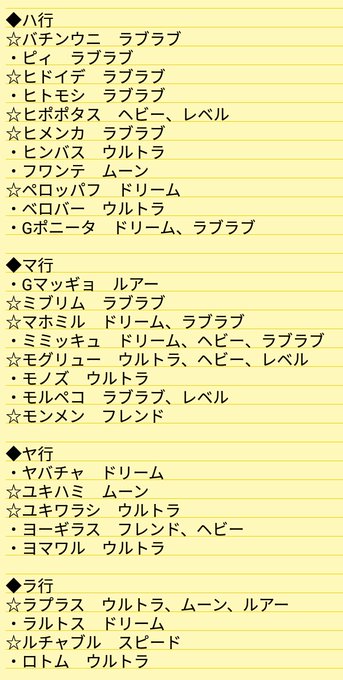 ◆ハ行
☆バチンウニ　ラブラブ
・ピィ　ラブラブ
☆ヒドイデ　ラブラブ
・ヒトモシ　ラブラブ
☆ヒポポタス　ヘビー、レベル
☆ヒメンカ　ラブラブ
・ヒンバス　ウルトラ
・フワンテ　ムーン
☆ペロッパフ　ドリーム
・ベロバー　ウルトラ
・Gポニータ　ドリーム、ラブラブ
◆マ行
・Gマッギョ　ルアー
☆ミブリム　ラブラブ
☆マホミル　ドリーム、ラブラブ
・ミミッキュ　ドリーム、ヘビー、ラブラブ
☆モグリュー　ウルトラ、ヘビー、レベル
・モノズ　ウルトラ
・モルペコ　ラブラブ、レベル
☆モンメン　フレンド
◆ヤ行
・ヤバチャ　ドリーム
☆ユキハミ　ムーン
☆ユキワラシ　ウルトラ
・ヨーギラス　フレンド、ヘビー
・ヨマワル　ウルトラ
◆ラ行
☆ラプラス　ウルトラ、ムーン、ルアー
・ラルトス　ドリーム
☆ルチャブル　スピード
・ロトム　ウルトラ